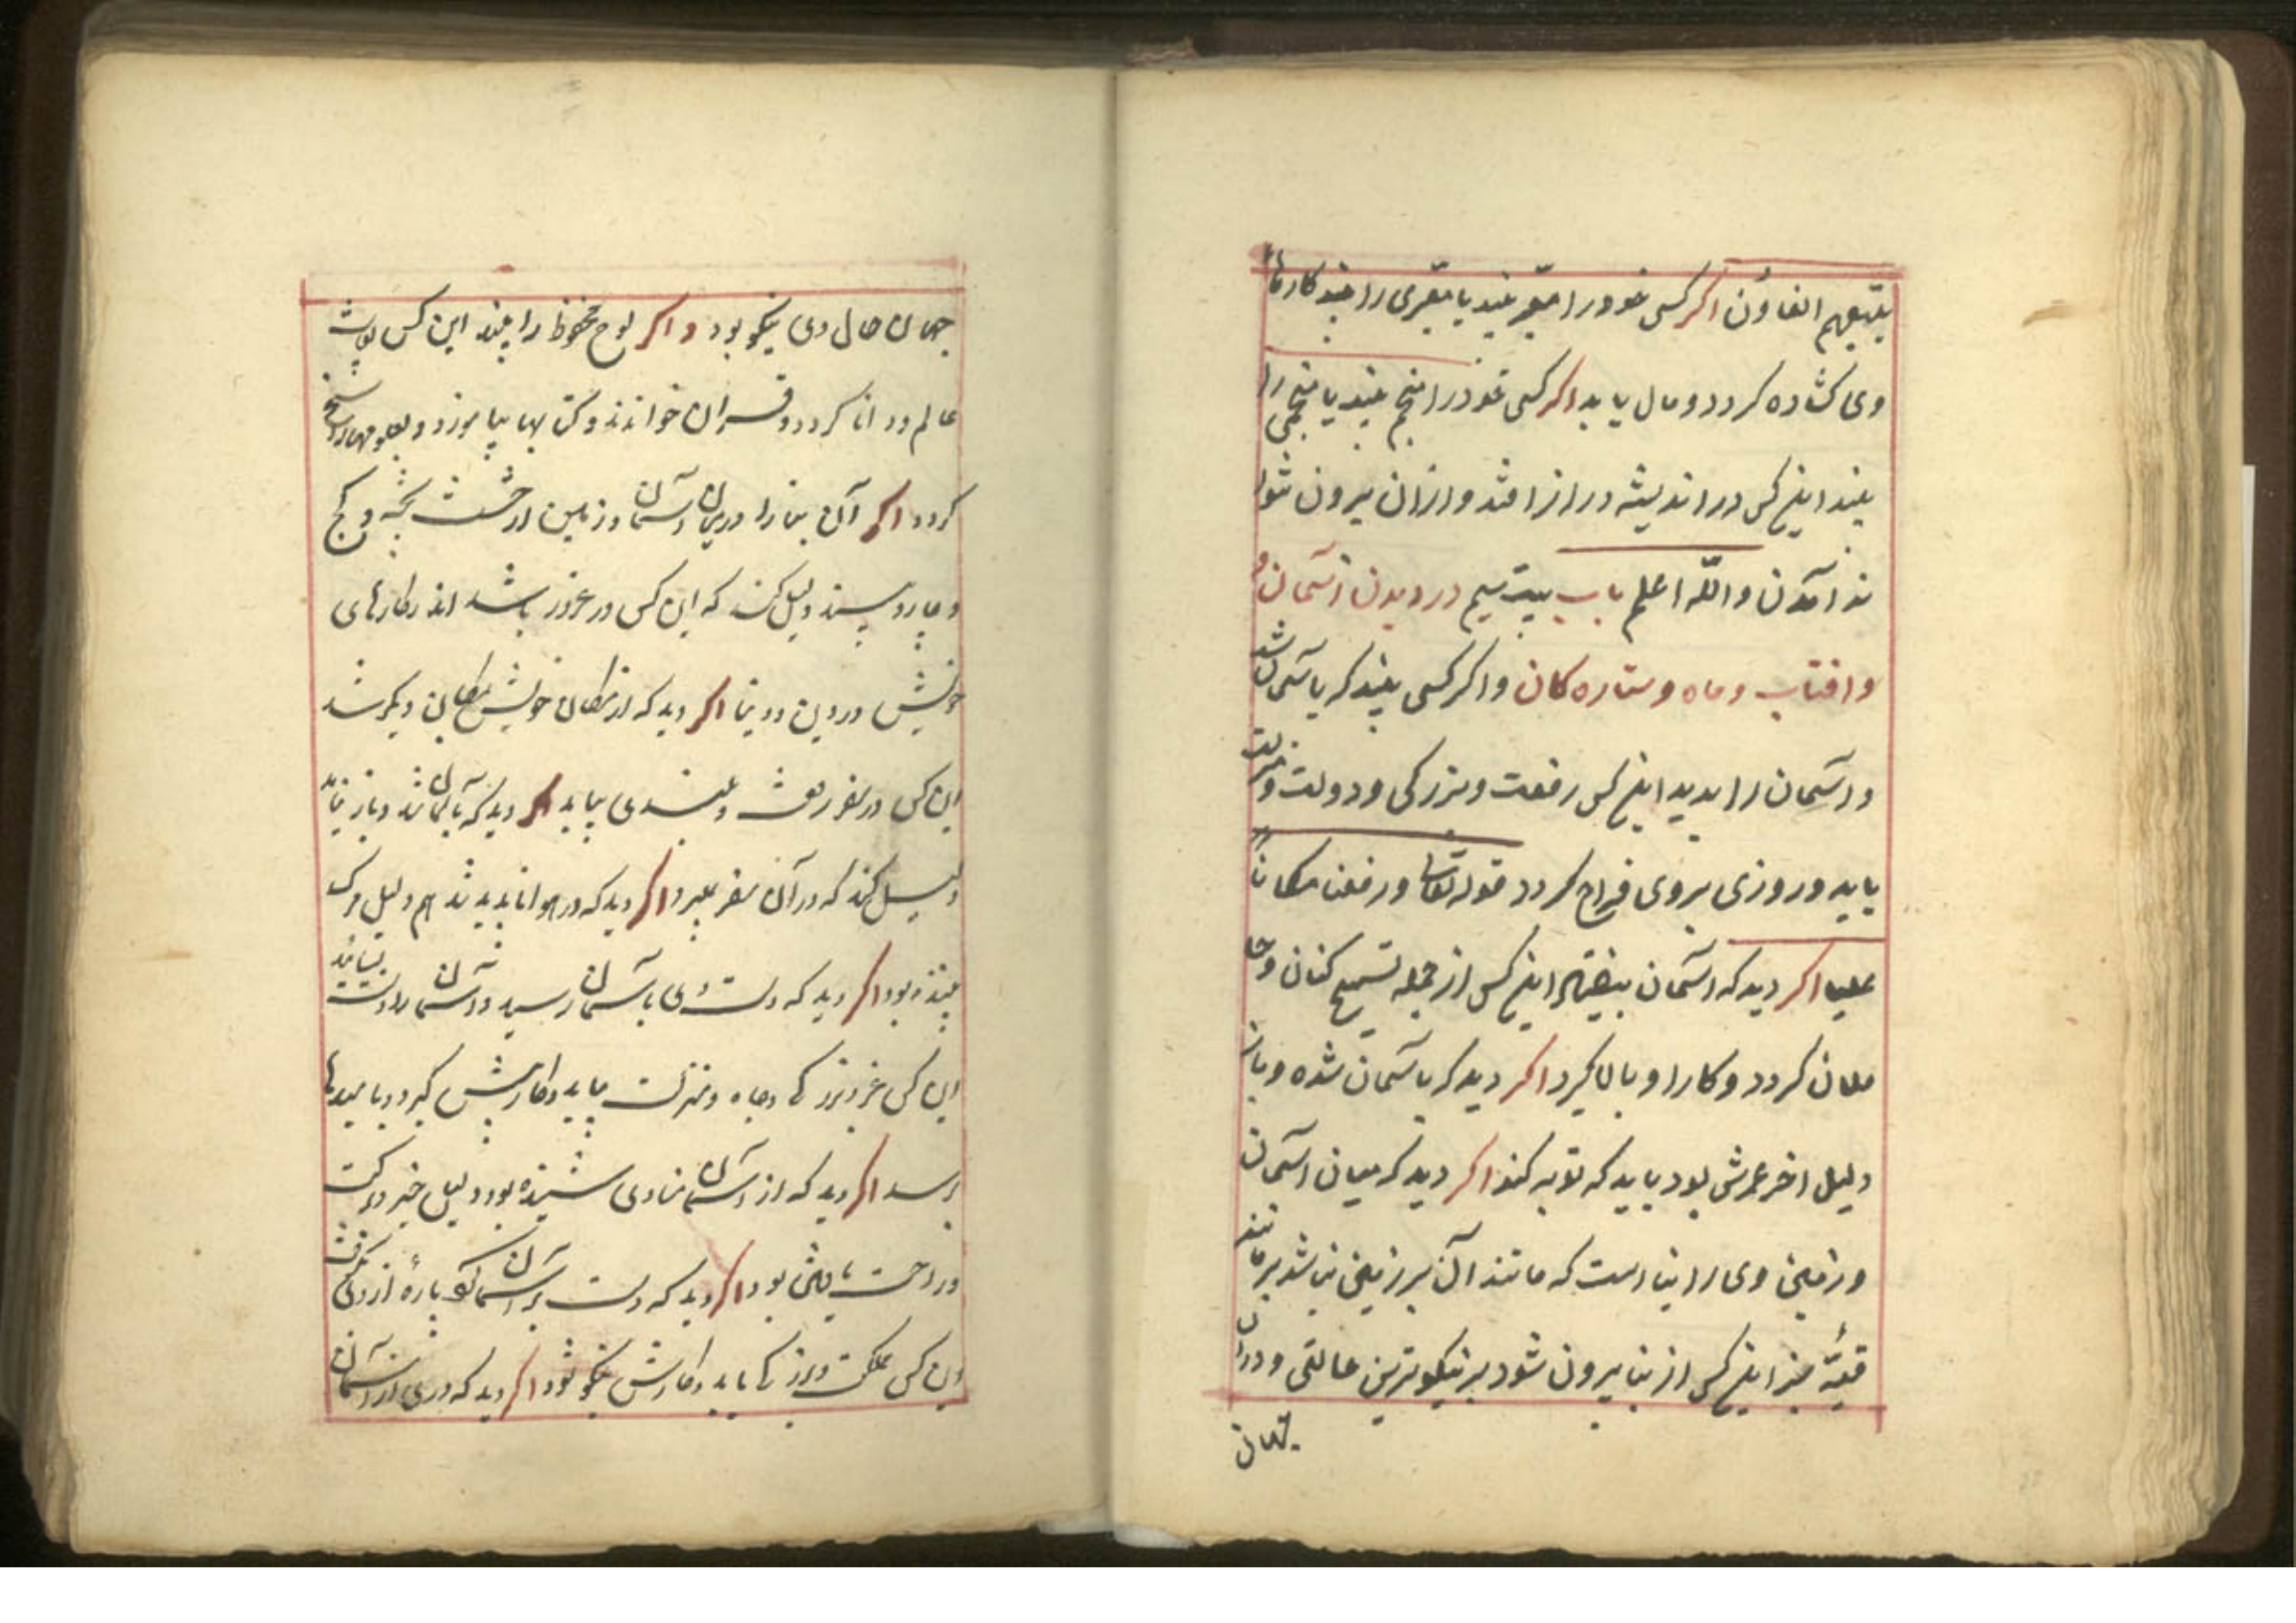 یتبعهم الغاؤن اکر کسی خودرا معبر بیند یا معبری را بیند کارها
وی کشاده کردد و مال یابد اکر کسی خودرا منجم بیند یا منجمی را
بیند اینکس در اندیشه دراز افتد و ازان بیرون نتوا
ند آمدن والله اعلم باب بیست سیم در دیدن آسمان
وافتاب وماه وستاره کان واکر کسی بیند که باسمان شد
و آسمان را بدید اینکس رفعت وبزرکی ودولت ومنزلت
یابد وروزی بروی فراخ کردد قوله تعالی ورفعناه مکانا
علیا اکر دید که آسمان بیفتد اینکس از جمله تسبیح کنان
کردد وکار او بالا کیرد اکر دید که باسمان شده وباز
دلیل اخر عمرش بود باید که توبه کند اکر دید که میان آسمان
وزمین وی را بنا است که مانند آن بر زمین نباشد بر مانند
قبّه جز اینکس از دنیا بیرون شود بر نیکوترین حالتی ودران
جهان
جهان حال وی نیکو بود واکر لوح محفوظ را بیند این کس
عالم ودانا کردد وقران خواند وکتابها بیاموزد وبعلومها راسخ
کردد اکر آن بنا را در میان آسمان وزمین از خشت پخته وکج
و بیند دلیل کند که این کس در غرور باشد اندر کارهای
خویش در دین ودنیا اکر دید که از مکان خویش بمکان دیکر شد
این کس در سفر رفعت وبلندی بیابد اکر دید که بآسمان شد وباز نیامد
دلیل کند که در آن سفر بمیرد اکر دید که در هوا ناپدید شد هم دلیل مرک
بیننده بود اکر دید که دست وی باسمان رسید
این کس عز وبزرکی وجاه ومنزلت بیابد وکارش کیرد وبامیدها
برسد اکر دید که از آسمان منادی شنیده بود دلیل خیر وبرکت
وراحت بود اکر دید که دست بر آسمان کرد پارهٔ ازو
این کس مملکت وبزرکی یابد وکارش نیکو شود اکر دید که دری از آسمان